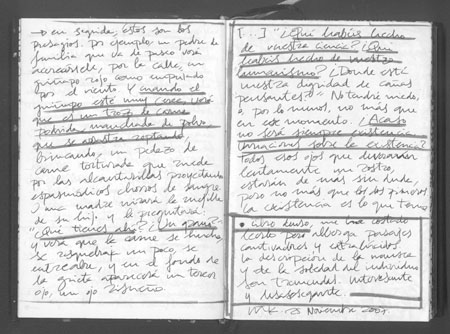 → en seguida, éstos son los
presagios. Por ejemplo, un padre de
familia que va de paseo verá
acercársele, por la calle, un
guiñapo rojo como empujado
por el viento. Y cuando el
guiñapo esté muy cerca, verá
que es un trozo de carne
podrida, manchada de polvo,
que se arrastra reptando,
brincando, un pedazo de
carne torturada que rueda
por las alcantarillas proyectando
espasmódicos chorros de sangre.
O una madre mirará la mejilla
de su hijo y le preguntará:
"¿Qué tienes ahí? ¿Un grano?"
y verá que la carne se hincha,
se resquebraja un poco, se
entreabre, y en el fondo de
la grieta aparecerá un tercer
ojo, un ojo
[...] "¿Qué habéis hecho
de vuestra ciencia? ¿Qué
habéis hecho de vuestro
humanismo? ¿Dónde está
vuestra dignidad de cañas
pensantes?" No tendré miedo,
o por lo menos, no más que
en este momento. ¿Acaso
no será siempre existencia,
variaciones sobre la existencia?
Todos esos ojos que devorarán
lentamente un rostro,
estarán de más, sin duda,
pero no más que los dos primeros.
la existencia es lo que temo.
• Libro denso, me ha costado
leerlo pero alberga pasajes
cautivadores y
la descripción de la náusea
y de la soledad del individuo
son tremendas. Interesante
y desasosegante.
Noviembre 2001.